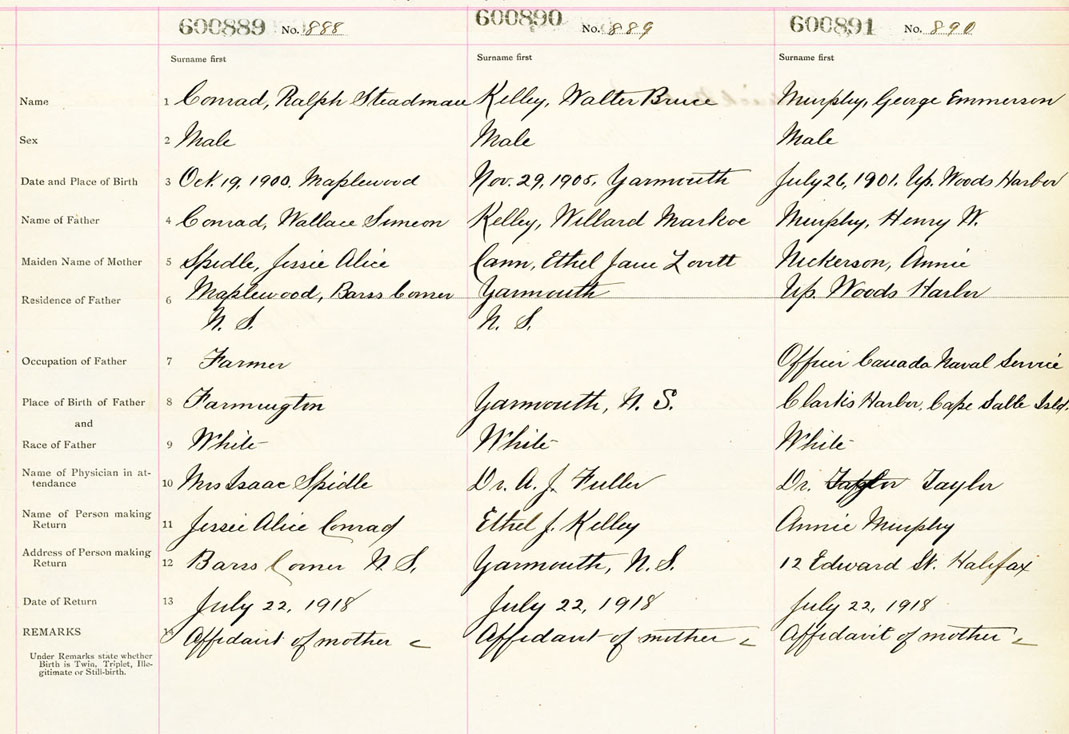 600889 No. 888 600890 No. 889 600891 No. 890
Surname first Surname first Surname first
Name 1 Conrad, Ralph Steadman Kelley, Walter Bruce Murphy, George Emmerson
Sex 2 Male Male Male
Date and Place of Birth 3 Oct. 19, 1900. Maplewood Nov. 29, 1905. Yarmouth July 26, 1901. Up. Woods Harbor
Name of Father 4 Conrad, Wallace Simeon Kelley, Willard Markoe Murphy, Henry W.
Maiden Name of Mother 5 Spidle, Jessie Alice Cann, Ethel Jane Lovitt Nickerson, Annie
Residence of Father 6 Maplewood, Barss Corner Yarmouth Up. Woods Harbor
N. S. N. S.
Occupation of Father 7 Farmer Officer Canada Naval Service
Place of Birth of Father 8 Farmington Yarmouth, N. S. Clark's Harbor, Cape Sable Isld.
and
Race of Father 9 White White White
Name of Physician in at-
tendance 10 Mrs Isaac Spidle Dr. A. J. Fuller Dr. Taylor Taylor
Name of Person making
Return 11 Jessie Alice Conrad Ethel J. Kelley Annie Murphy
Address of Person making
Return 12 Barss Corner N. S. Yarmouth, N. S. 12 Edward St. Halifax
Date of Return 13 July 22, 1918 July 22, 1918 July 22, 1918
REMARKS Affidavit of mother Affidavit of mother Affidavit of mother
Under Remarks state whether
Birth is Twin, Triplet, Ille-
gitimate or Still-birth.